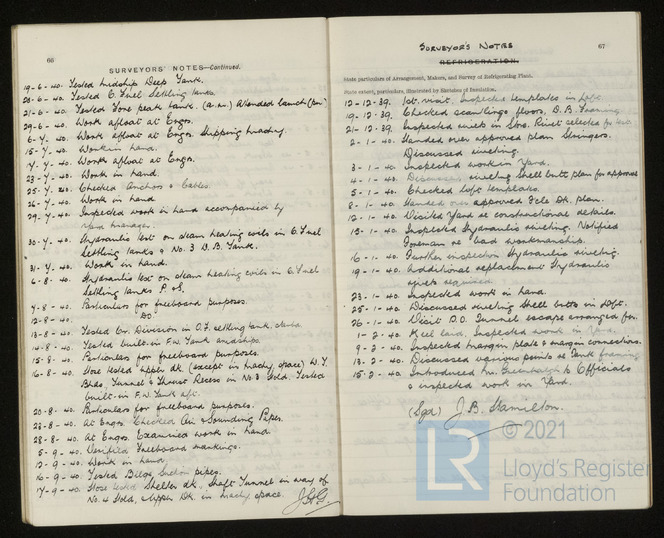 66
SURVEYORS' NOTES—Continued.
19-6-40. Tested Deep Tank.
20-6-40. Tested O. Fuel Settling tanks.
21-6-40. Tested Fore peak tank. (a.m.) Attended launch (pm)
29-6-40. Work afloat at Engrs.
6-7-40. Work afloat at Engrs. Shipping
15-7-40. Work in hand.
17-7-40. Work afloat at Engrs.
23-7-40. Work in hand.
25-7-40. Checked Anchors & Cables.
26-7-40. Work in hand
29-7-40. Inspected work in hand accompanied by
Yard manager.
30-7-40. Hydraulic test on steam heating coils in O. Fuel
Settling tanks & No. 3 D.B. Tank.
31-7-40. Work in hand.
6-8-40. Hydraulic test on steam heating coils in O. Fuel
Settling tanks P. & S.
7-8-40. Particulars for freeboard purposes.
12-8-40. DO.
13-8-40. Tested Cr. Division in O.F. settling tank
14-8-40. Tested built-in F.W. Tank
15-8-40. Particulars for freeboard purposes.
16-8-40. Hose tested upper dk. (except in machy space) W.T.
Bhds. Tunnel & Thrust Recess in No. 3 Hold. Tested
built-in F.W. Tank aft.
20-8-40. Particulars for freeboard purposes.
22-8-40. At Engrs. Checked Air & Sounding Pipes.
28-8-40. At Engrs. Examined work in hand.
5-9-40. Verified Freeboard markings.
12-9-40. Work in hand
16-9-40. Tested Bilge Suction pipes.
17-9-40. Hose tested Shelter dk., Shaft Tunnel in way of
No. 4 Hold, & Upper Dk. in machy space.
67
SURVEYOR'S NOTES
REFRIGERATION.
State particulars of Arrangement, Makers, and Survey of Refrigerating Plant.
State extent, particulars, illustrated by Sketches of Insulation.
12-12-39. 1st. visit. Inspected templates in loft.
19-12-39. Checked scantlings floors, D.B. Framing
21-12-39. Inspected in Stores. Rivet selected for
2-1-40. Handed over approved plan Stringers.
Discussed riveting.
3-1-40. Inspected work in Yard.
4-1-40. Discussed riveting Shell butts plan for approval
5-1-40. Checked loft templates.
8-1-40. Handed over approved Fcle Dk. plan.
12-1-40. Visited Yard re constructional details.
15-1-40. Inspected hydraulic riveting. Notified
Foreman re bad workmanship.
16-1-40. Further inspection hydraulic riveting.
19-1-40. Additional replacement hydraulic
rivets required
23-1-40. Inspected work in hand.
25-1-40. Discussed riveting Shell butts in loft.
26-1-40. Visit D.O. Tunnel escape arranged for.
1-2-40. Keel laid. Inspected work in Yard.
9-2-40. Inspected margin plate & margin connections.
13-2-40. Discussed various points re Tank framing
15-2-40. Introduced Mr. to Officials
& inspected work in Yard.
(Sgd) J. B. Hamilton.
LR
© 2021
Lloyd's Register
Foundation